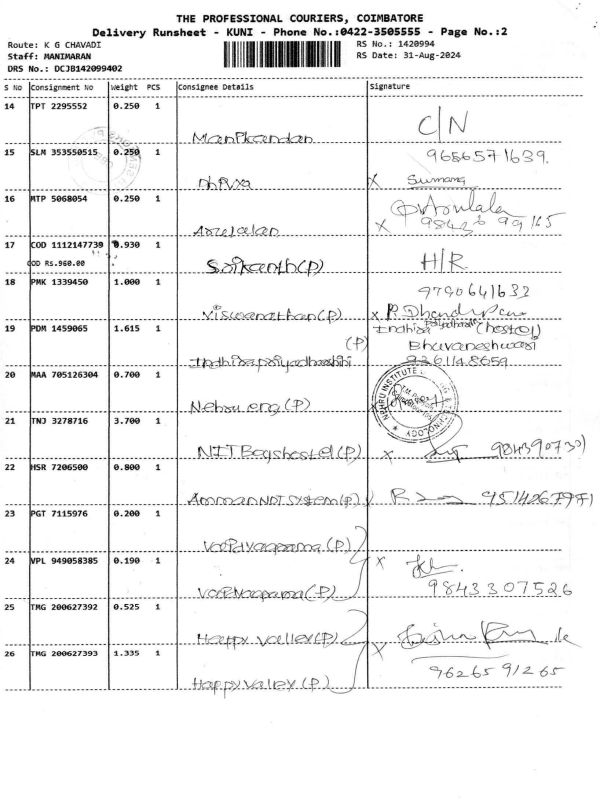 THE PROFESSIONAL COURIERS, COIMBATORE
Delivery Runsheet - KUNI - Phone No.:0422-3505555 - Page No.:2
Route: K G CHAVADI RS No.: 1420994
Staff: MANIMARAN RS Date: 31-Aug-2024
DRS No.: DCJB142099402
S No Consignment No Weight PCS Consignee Details Signature
14 TPT 2295552 0.250 1
Manikandan C/N
15 SLM 353550515 0.250 1 9656571639.
x Sumang
16 MTP 5068054 0.250 1
x
17 COD 1112147739 0.930 1
COD Rs.960.00 Srikanth(P) H/R
18 PMK 1339450 1.000 1 9790641632
Viswanathan(P) x
19 PDM 1459065 1.615 1 Indhira (hostel)
(P) Bhuvaneshwari
9361148659
20 MAA 705126304 0.700 1
NEHRU INSTITUTE
Nehru eng(P)
21 TNJ 3278716 3.700 1
NIT Boys hostel(P) x
22 HSR 7206500 0.800 1
Amman NDT System(P)
23 PGT 7115976 0.200 1
24 VPL 949058385 0.190 1 x
9843307526
25 TMG 200627392 0.525 1
Happy valley(P)
26 TMG 200627393 1.335 1 x
9626591265
Happy valley(P)